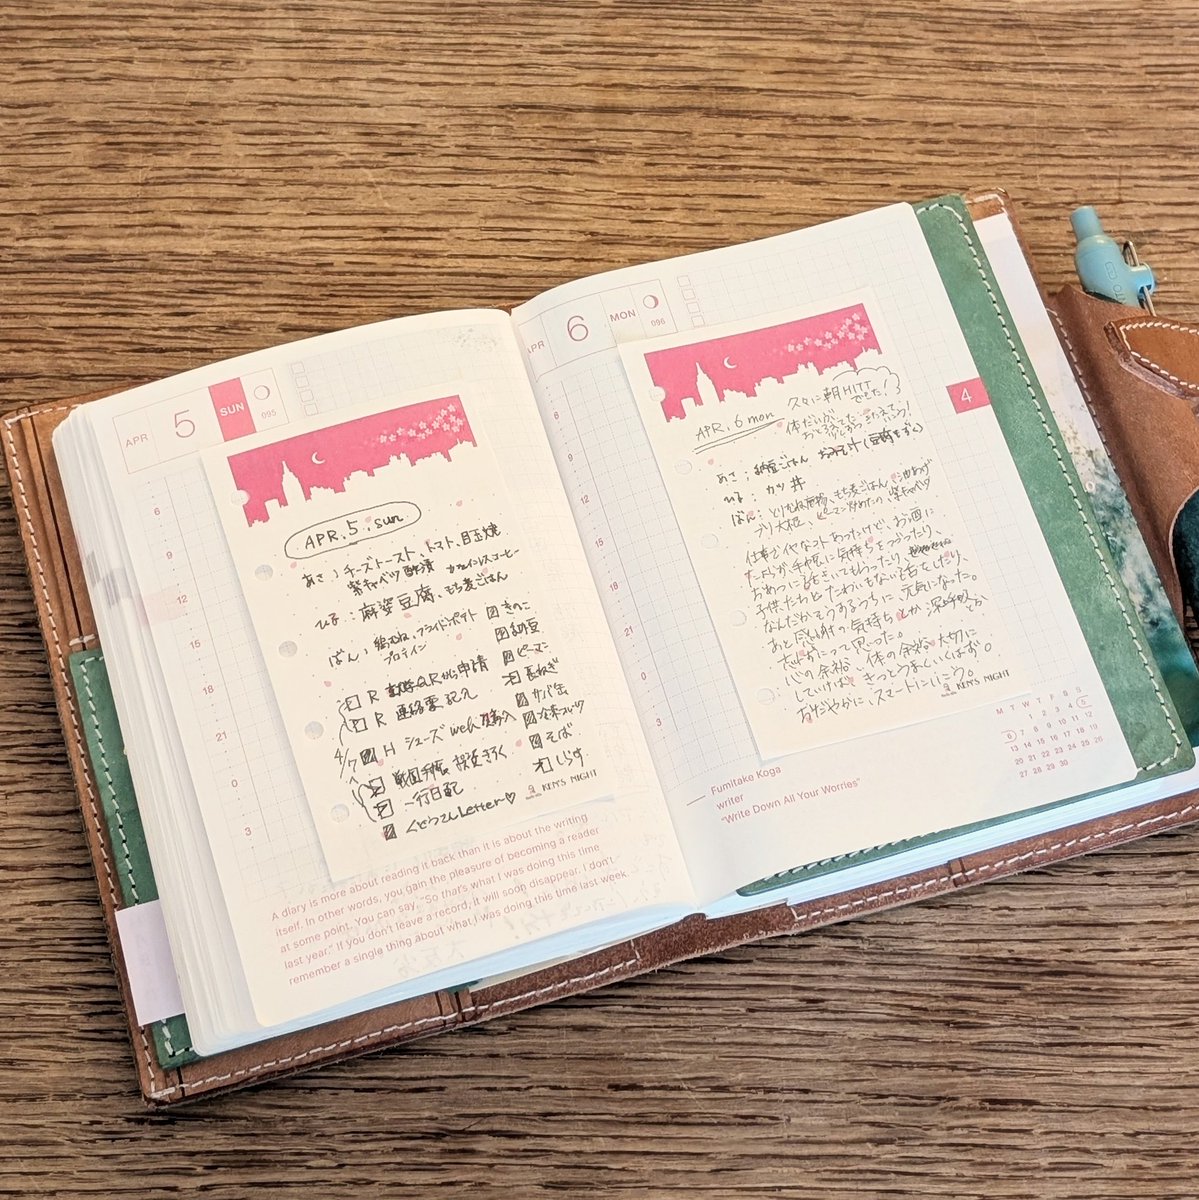 APR 5 SUN
095
6
9
12
15
18
21
0
3
APR.5.sun
あさ：チーズトースト、トマト、目玉焼
紫キャベツ酢漬 カフェインレスコーヒー
ひる：麻婆豆腐、もち麦ごはん
ばん：鶏むね、フライドポテト
プロテイン
きのこ
納豆
ピーマン
長ねぎ
サバ缶
冷凍フルーツ
そば
しらす
R QRから申請
R 連絡票記入
4/7 H シューズ web購入
手帳 きろく
一行日記
Letter♡
KEN'S NIGHT
A diary is more about reading it back than it is about the writing
itself. In other words, you gain the pleasure of becoming a reader
at some point. You can say, "So that's what I was doing this time
last year." If you don't leave a record, it will soon disappear. I don't
remember a single thing about what I was doing this time last week.
APR 6 MON
096
6
9
12
15
18
21
0
3
4
APR.6 mon
久々に朝HIIT
できた！
あさ：納豆ごはん おみそ汁（豆腐もずく）
ひる：カツ丼
ばん：とりむね、もち麦ごはん、油あげ
ブリ大根、ピーマン炒めたの、紫キャベツ
仕事でイヤなコトあったけど、お酒に
たよらず、手帳に気持ちをつづったり、
おめつに話をきいてもらったり、
子供たちとたわいもない話をしたり、
なんだかそうするうちに、元気になった。
あと感謝の気持ちとか深呼吸とか
大事だなって思った。
心の余裕、体の余裕、大切に
していけば、きっとうまくいくはず。
おだやかに、スマートにいこう。
KEN'S NIGHT
Fumitake Koga
writer
"Write Down All Your Worries"
M T W T F S S
1 2 3 4 5
6 7 8 9 10 11 12
13 14 15 16 17 18 19
20 21 22 23 24 25 26
27 28 29 30